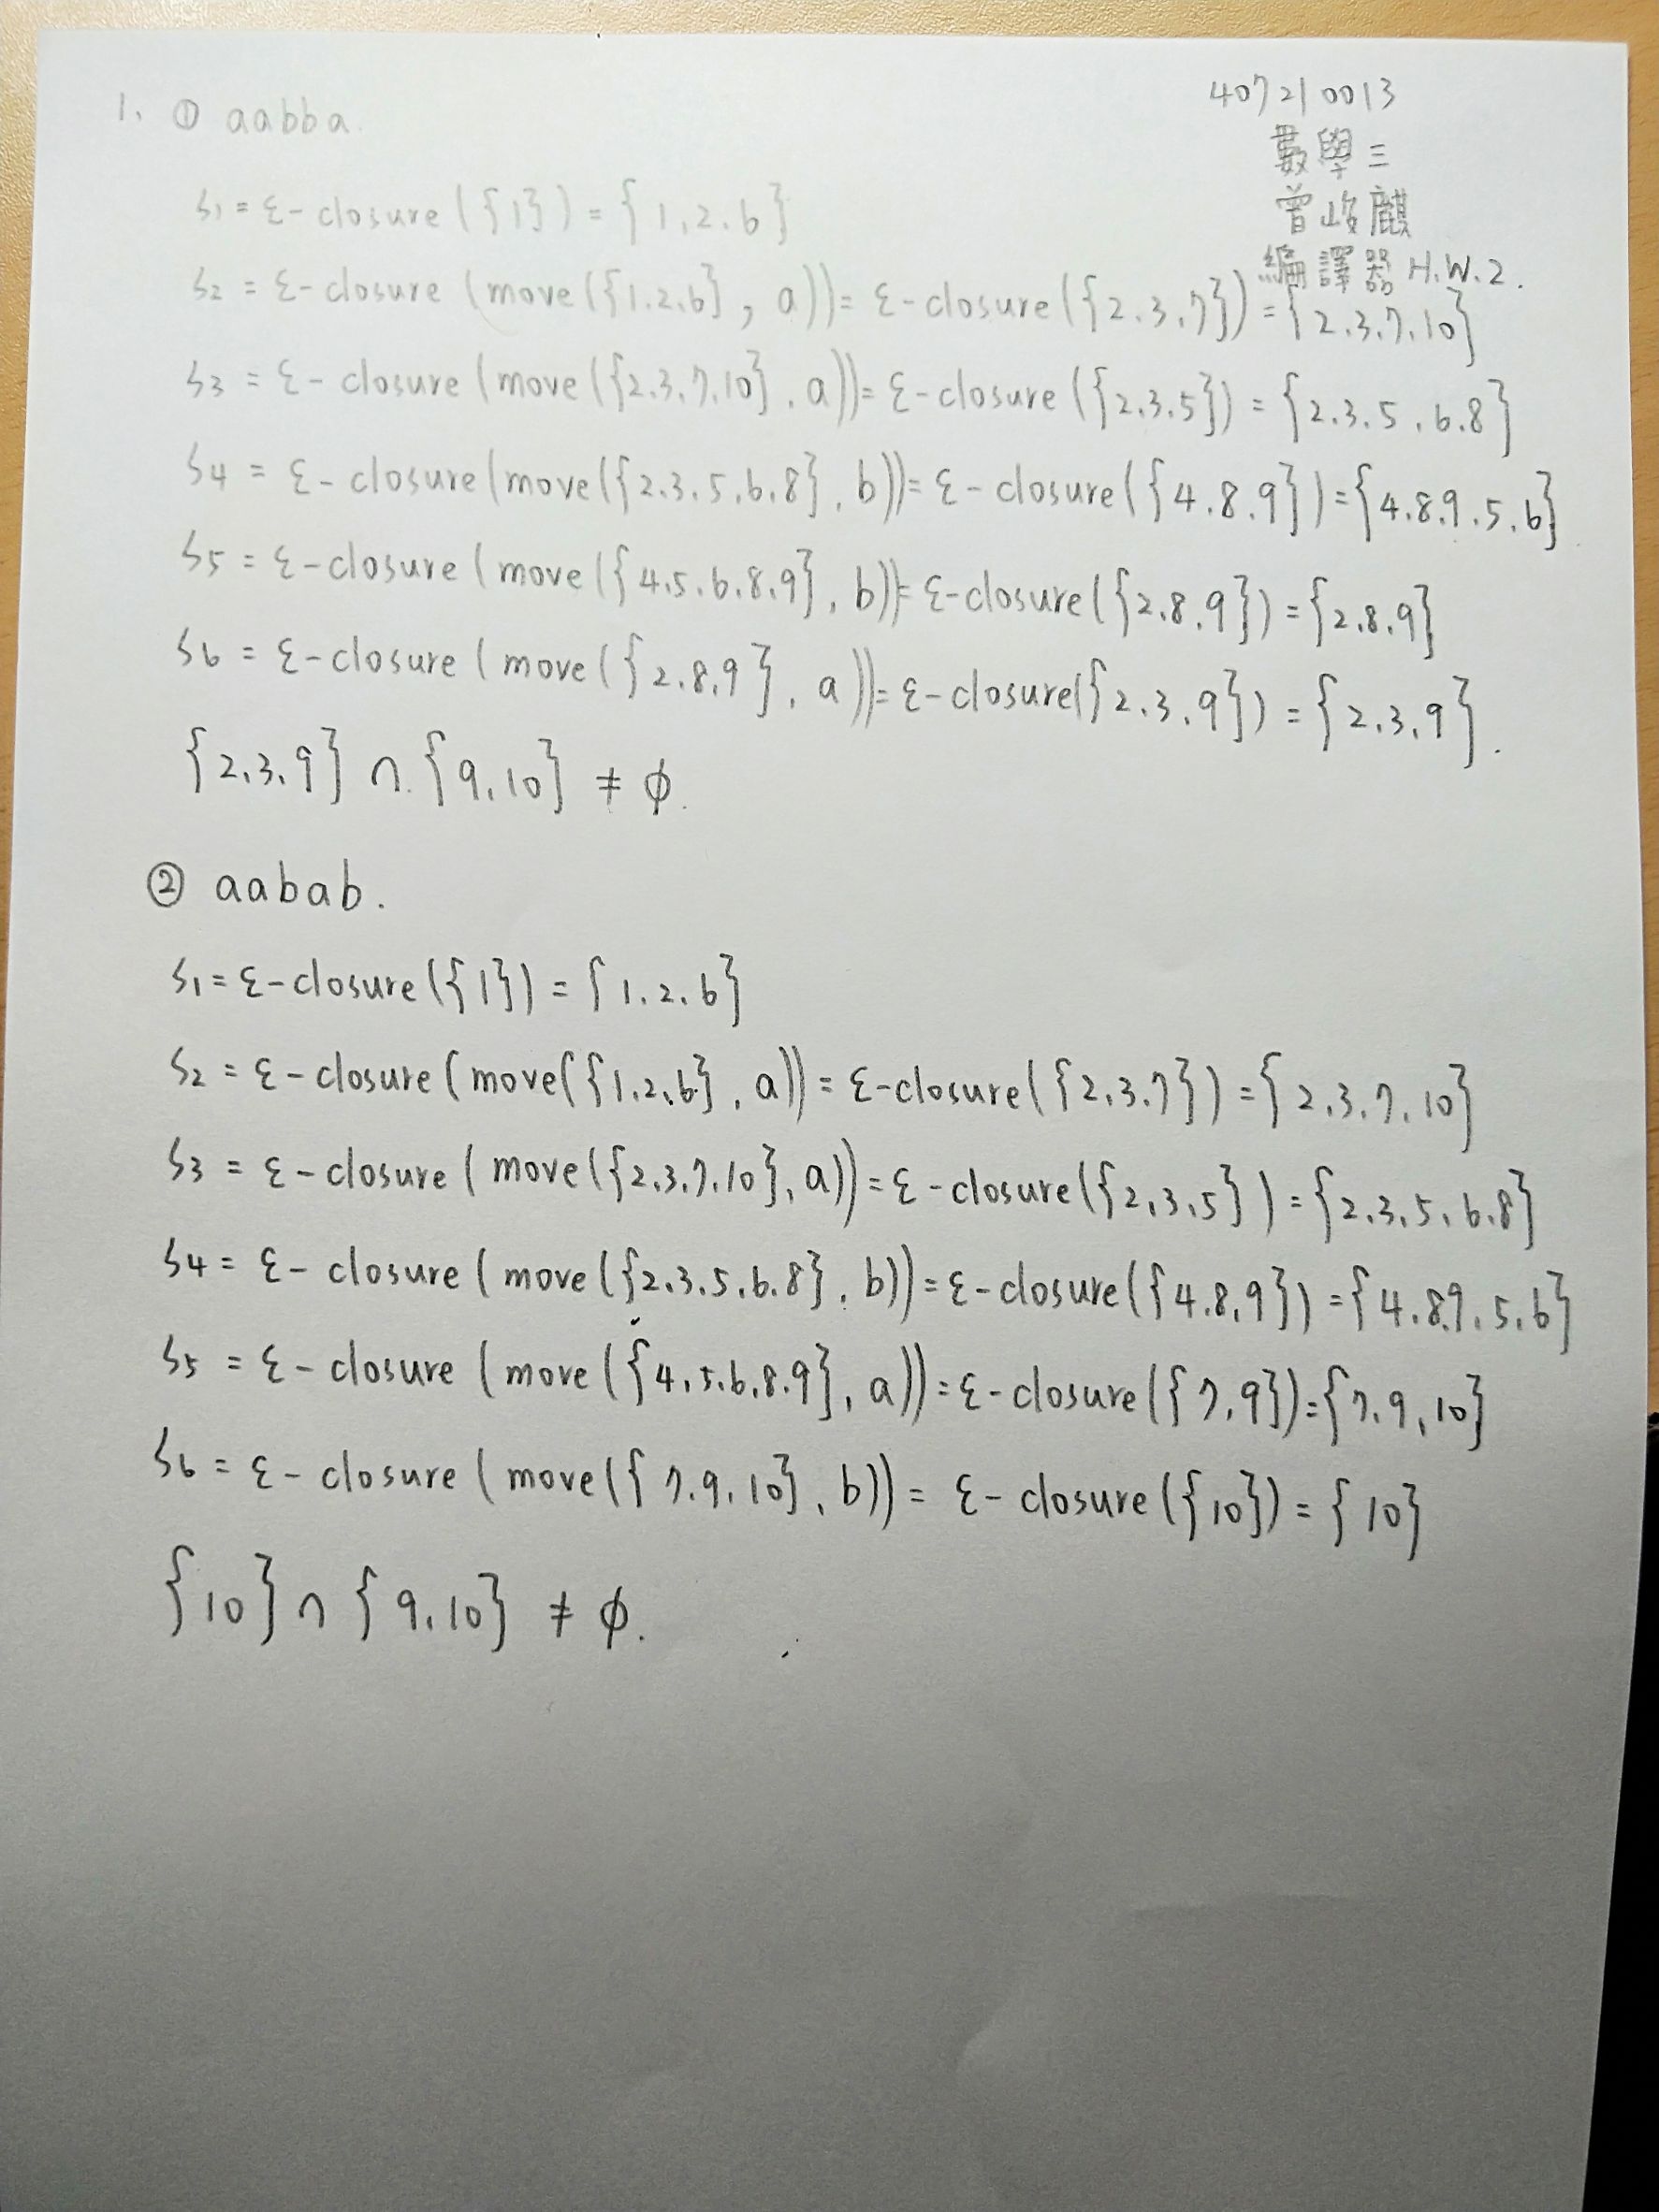 40721 0013
數學三
曾峻麒
編譯器 H.W.2.
1. ① aabba.
S1 = ε-closure ({1}) = {1,2.6}
S2 = ε-closure (move({1.2.6}, a)) = ε-closure({2.3.7}) = {2.3.7.10}
S3 = ε-closure (move({2.3.7.10}, a)) = ε-closure ({2.3.5}) = {2.3.5.6.8}
S4 = ε-closure (move({2.3.5.6.8}, b)) = ε-closure({4.8.9}) = {4.8.9.5.6}
S5 = ε-closure (move({4.5.6.8.9}, b)) = ε-closure({2.8.9}) = {2.8.9}
S6 = ε-closure (move({2.8.9}, a)) = ε-closure({2.3.9}) = {2.3.9}.
{2.3.9} ∩ {9.10} ≠ ϕ.
② aabab.
S1 = ε-closure({1}) = {1.2.6}
S2 = ε-closure (move({1.2.6}, a)) = ε-closure({2.3.7}) = {2.3.7.10}
S3 = ε-closure (move({2.3.7.10}, a)) = ε-closure({2.3.5}) = {2.3.5.6.8}
S4 = ε-closure (move({2.3.5.6.8}, b)) = ε-closure({4.8.9}) = {4.8.9.5.6}
S5 = ε-closure (move({4.5.6.8.9}, a)) = ε-closure({7.9}) = {7.9.10}
S6 = ε-closure (move({7.9.10}, b)) = ε-closure({10}) = {10}
{10} ∩ {9.10} ≠ ϕ.